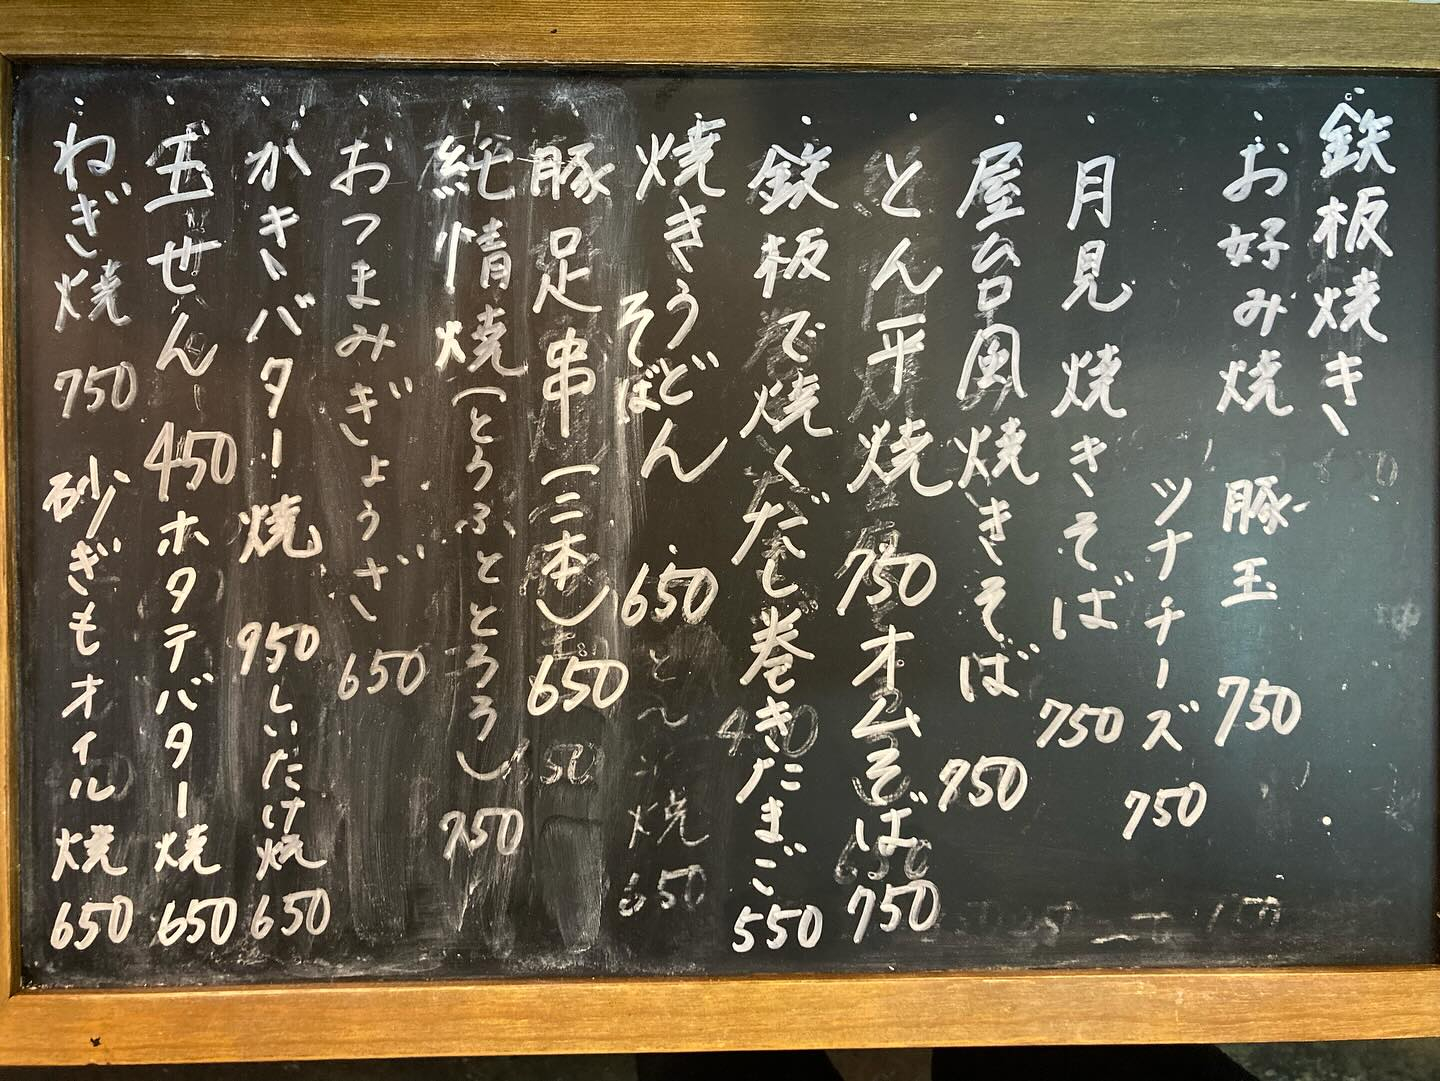 鉄板焼き
・お好み焼 豚玉 750
ツナチーズ 750
・月見焼きそば 750
・屋台風焼きそば 750
・とん平焼 750 オムそば 750
・鉄板で焼くだし巻きたまご 550
・焼きうどん
そば 650
・豚足串(二本) 650
・純情焼(とうふととろろ) 750
・おつまみぎょうざ 650
・かきバター焼 950 しいたけ焼 650
・玉せん 450 ホタテバター焼 650
・ねぎ焼 750 砂ぎもオイル焼 650